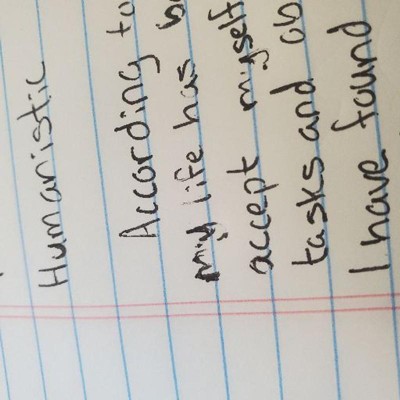 Humanistic
According to
my life has
accept myself
tasks and ob
I have found